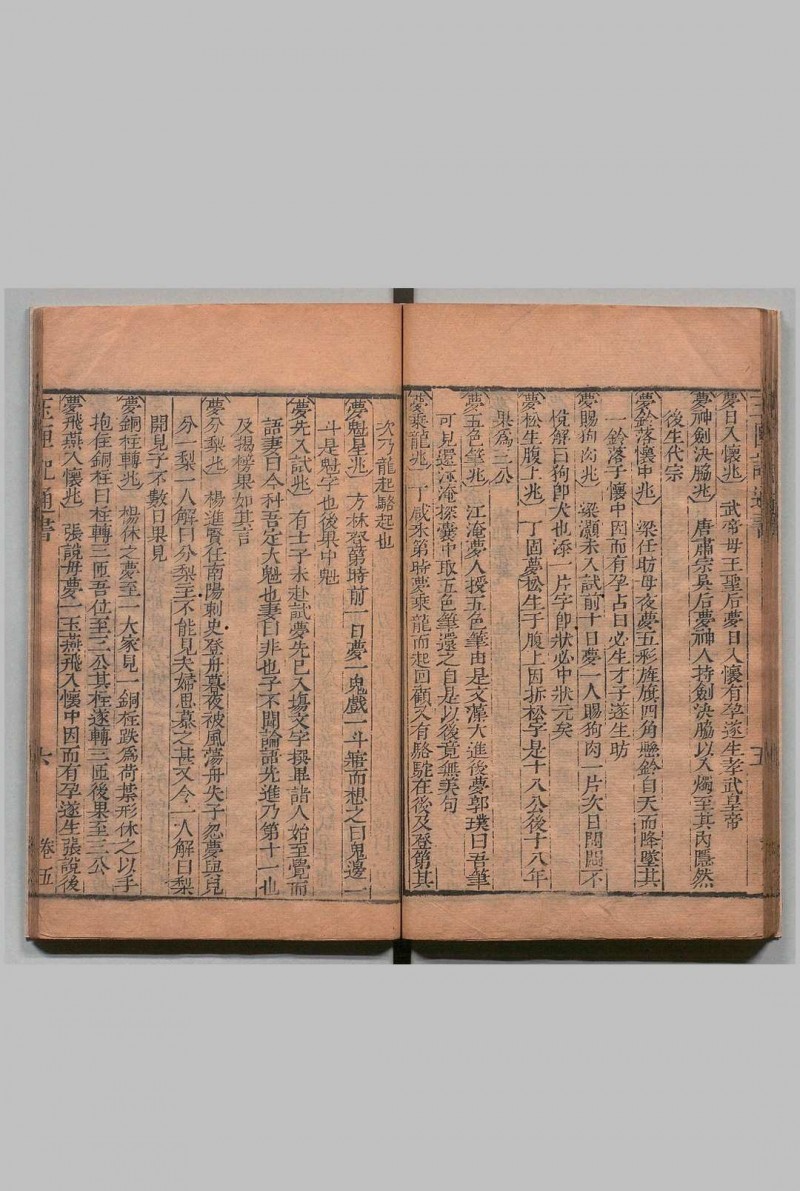 夢日入懷兆 武帝母王聖后夢日入懷有孕遂生孝武皇帝
夢神劍決脇兆 唐肅宗吳后夢神人持劍決脇以入燭至其內隱然
後生代宗
夢鈴落懷中兆 梁任昉母夜夢五彩旌旗四角懸鈴自天而降墜其
一鈴落于懷中因而有孕占曰必生才子遂生昉
夢賜狗肉兆 梁灝未入試前十日夢一人賜狗肉一片次日悶悶不
悅解曰狗即犬也添一片字即狀必中狀元矣
夢松生腹上兆 丁固夢松生于腹上因拆松字是十八公後十八年
果為三公
夢五色筆兆 江淹夢人授五色筆由是文藻大進後夢郭璞曰吾筆
可見還淹探囊中取五色筆還之自是以後竟無美句
夢乘龍兆 丁咸來第時夢乘龍而起回顧又有駱駝在後及登第其
次乃龍起駱起也
夢魁星兆 方林登第時前一日夢一鬼戲一斗寤而想之曰鬼邊一
斗是魁字也後果中魁
夢先入試兆 有士子未赴試夢先已入場文字撰畢諸人始至覺而
語妻曰今科吾定大魁也妻曰非也子不聞論語先進乃第十一也
及揭榜果如其言
夢分梨兆 楊進賢任南陽刺史登舟暮夜被風蕩舟失子忽夢與兒
分一梨一人解曰分梨主不能見夫婦思慕之甚又令一人解曰梨
開見子不數日果見
夢銅柱轉兆 楊休之夢至一大家見一銅柱跌為荷葉形休之以手
抱住銅柱曰柱轉三匝吾位至三公其柱遂轉三匝後果至三公
夢飛燕入懷兆 張說母夢一玉燕飛入懷中因而有孕遂生張說後
玉匣記通書 卷五 六